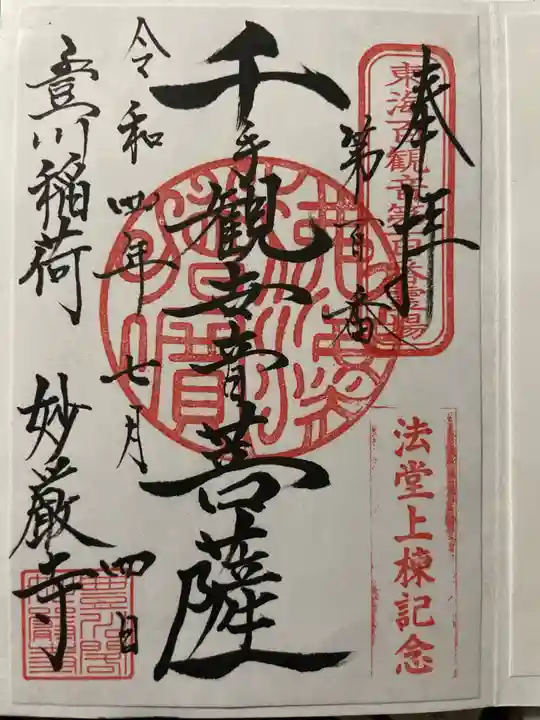 奉拝
東海百観音第百番霊場
第百番
法堂上棟記念
千手観世音菩薩
令和四年七月四日
豊川稲荷 妙厳寺